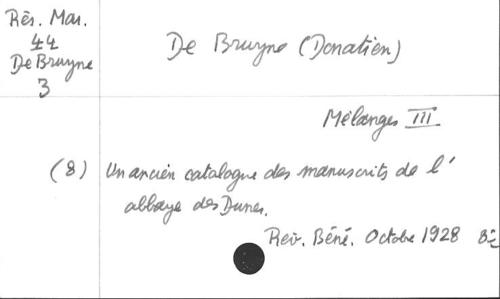 Rés. Mar.
44
De Bruyne
3
De Bruyne (Donatien)
Mélanges III
(8) Un ancien catalogue des manuscrits de l'
abbaye des Dunes.
Rev. Béné. Octobre 1928